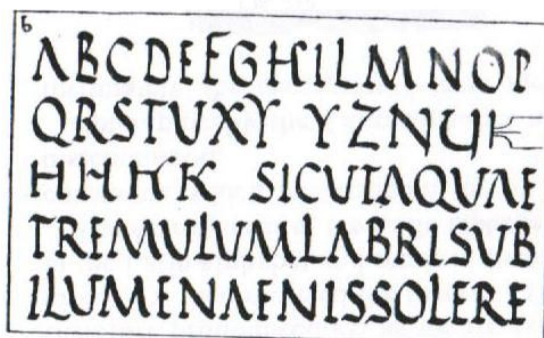 6
ABCDEFGHILMNOP
QRSTUXY YZNUK
HHKK SICUTAQUAE
TREMULUMLABRISUB
ILUMENAENISSOLERE